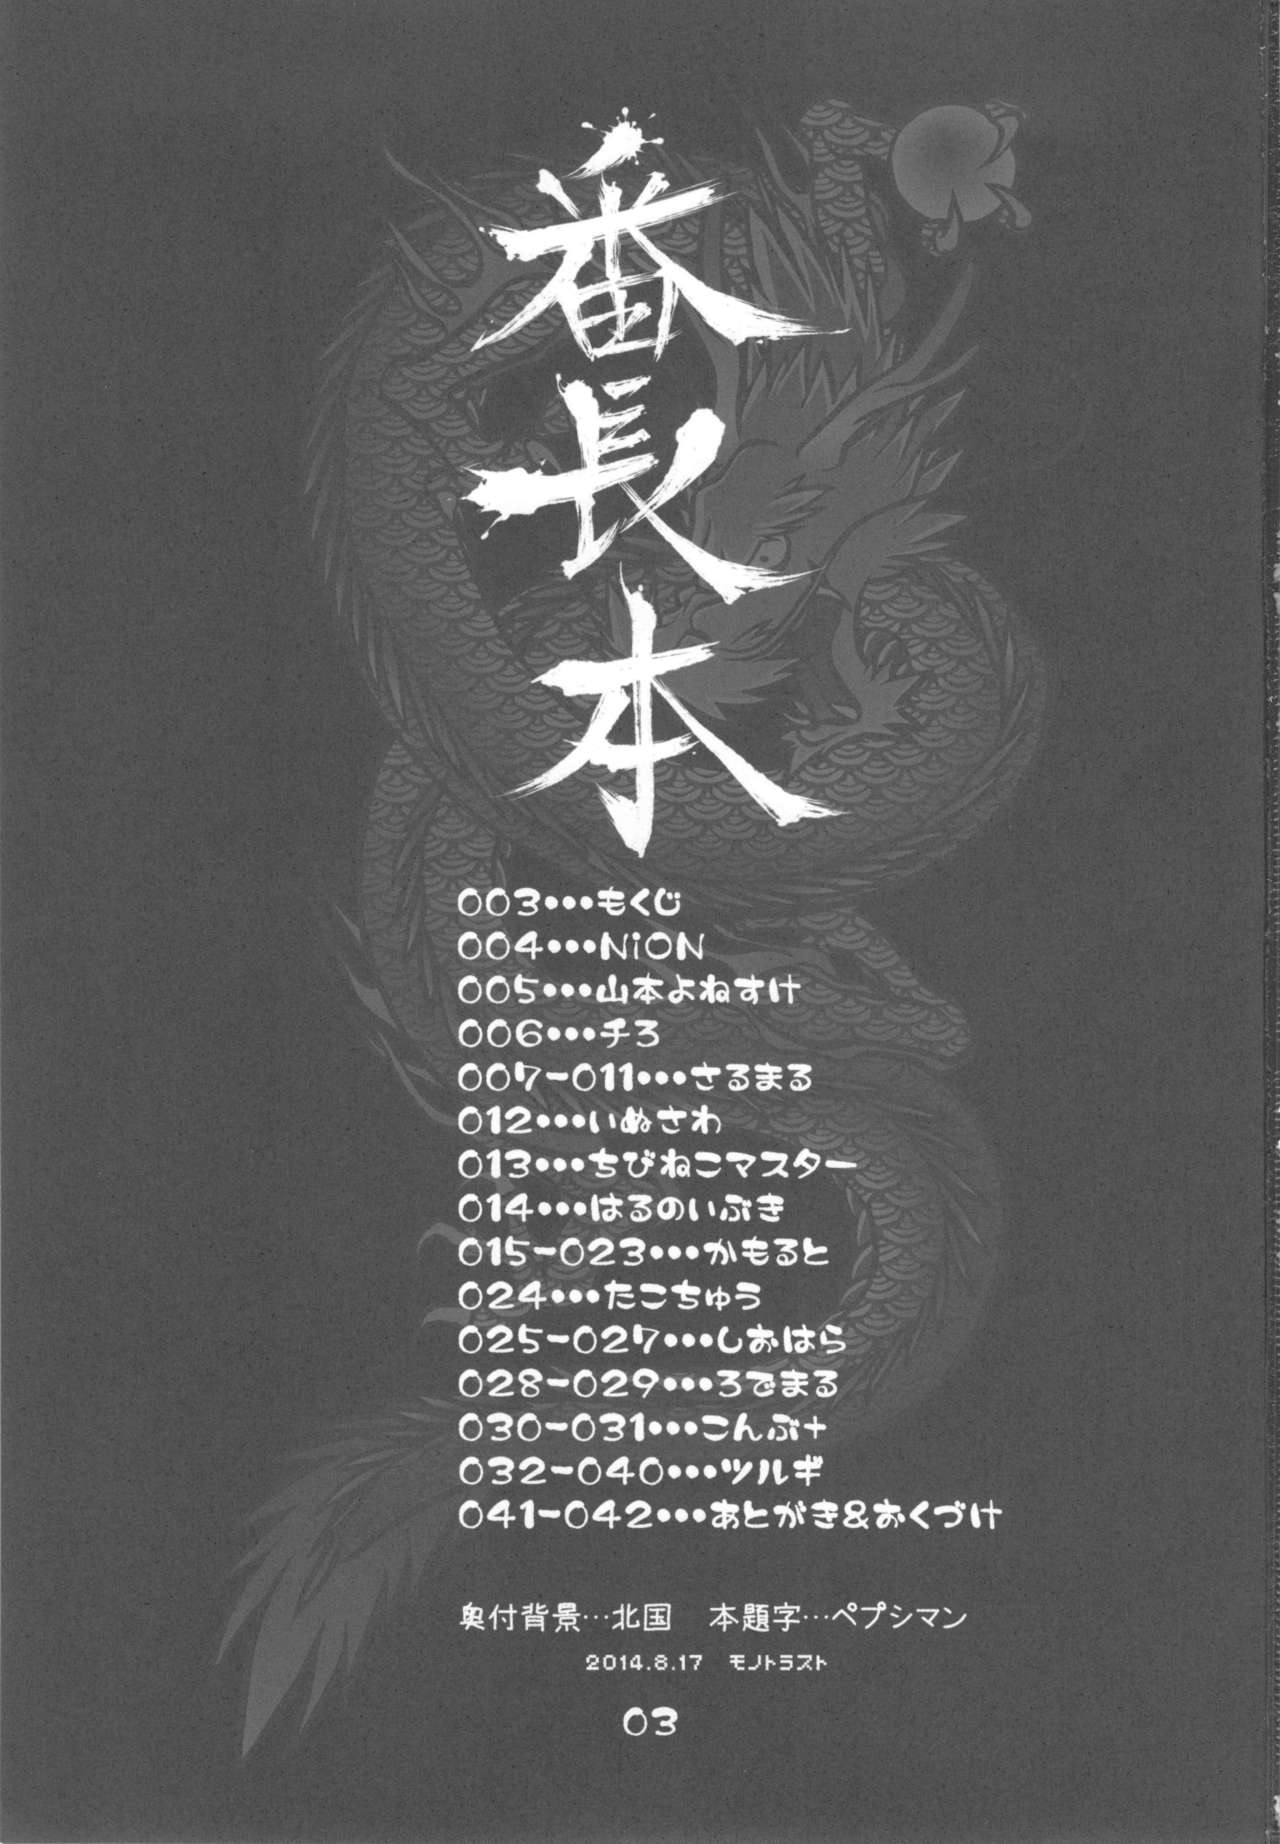 番長本
003・・・もくじ
004・・・NiON
005・・・山本よねすけ
006・・・チろ
007-011・・・さるまる
012・・・いぬさわ
013・・・ちびねこマスター
014・・・はるのいぶき
015-023・・・かもると
024・・・たこちゅう
025-027・・・しおはら
028-029・・・ろでまる
030-031・・・こんぶ+
032-040・・・ツルギ
041-042・・・あとがき&おくづけ
奥付背景…北国　本題字…ペプシマン
2014.8.17　モノトラスト
03